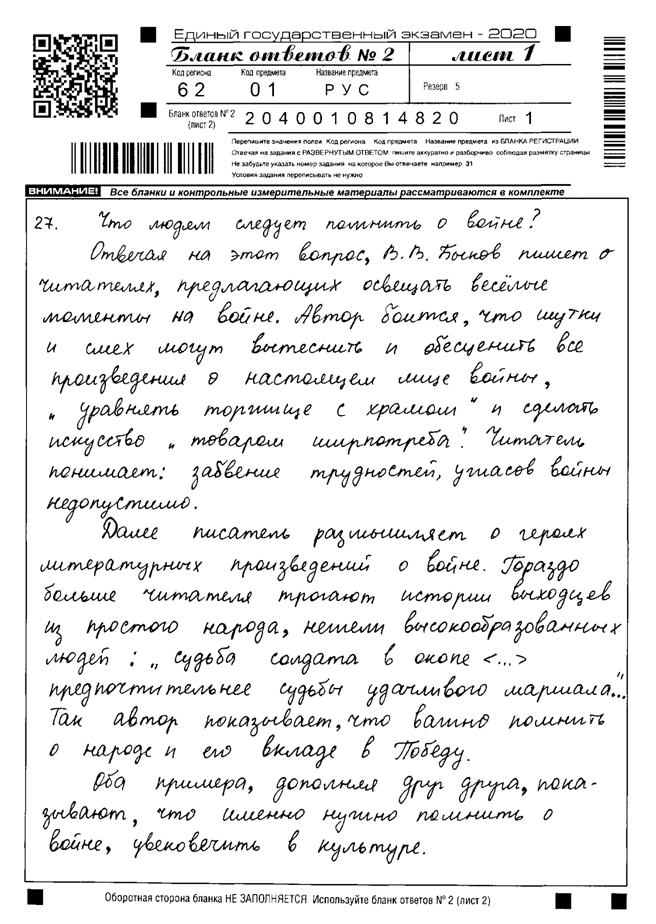 Единый государственный экзамен - 2020
Бланк ответов № 2 лист 1
Код региона Код предмета Название предмета
62 01 РУС Резерв 5
Бланк ответов № 2 (лист 2) 2040010814820 Лист 1
Перепишите значения полей Код региона Код предмета Название предмета из БЛАНКА РЕГИСТРАЦИИ
Отвечая на задания с РАЗВЕРНУТЫМ ОТВЕТОМ пишите аккуратно и разборчиво соблюдая разметку страницы
Не забудьте указать номер задания на которое Вы отвечаете например 31
Условия задания переписывать не нужно
ВНИМАНИЕ! Все бланки и контрольные измерительные материалы рассматриваются в комплекте
27. Что людям следует помнить о войне?
Отвечая на этот вопрос, В.В. Быков пишет о
читателях, предлагающих освещать весёлые
моменты на войне. Автор боится, что шутки
и смех могут вытеснить и обесценить все
произведения о настоящем лице войны,
„уравнять торжище с храмом" и сделать
искусство „товаром ширпотреба". Читатель
понимает: забвение трудностей, ужасов войны
недопустимо.
Далее писатель размышляет о героях
литературных произведений о войне. Гораздо
больше читателя трогают истории выходцев
из простого народа, нежели высокообразованных
людей: „судьба солдата в окопе <...>
предпочтительнее судьбы удачливого маршала"...
Так автор показывает, что важно помнить
о народе и его вкладе в Победу.
Оба примера, дополняя друг друга, пока-
зывают, что именно нужно помнить о
войне, увековечить в культуре.
Оборотная сторона бланка НЕ ЗАПОЛНЯЕТСЯ Используйте бланк ответов № 2 (лист 2)